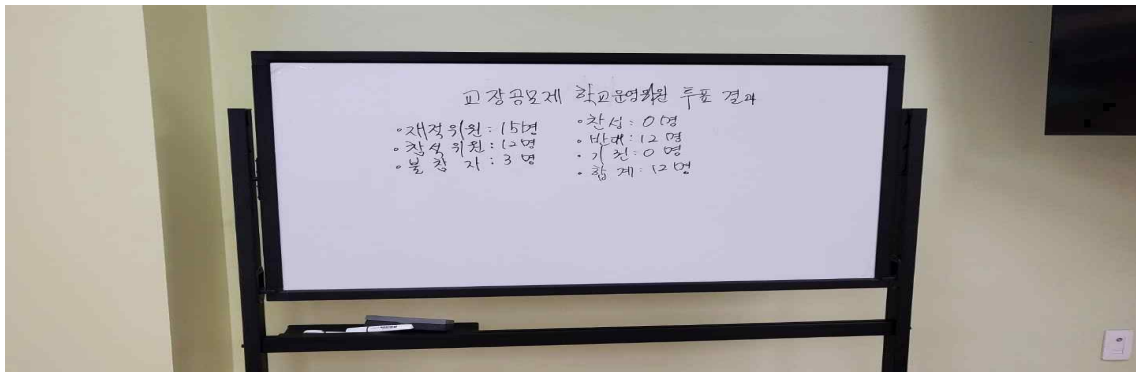 교장공모제 학교운영위원 투표 결과
• 재적위원 : 15명
• 참석위원 : 12명
• 불참자 : 3명
• 찬성 : 0명
• 반대 : 12명
• 기권 : 0명
• 합계 : 12명